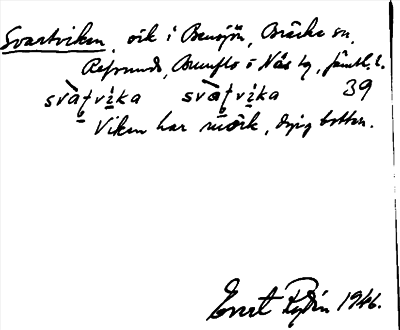 Svartviken, vik i Bensjön, Bräcke sn,
Refsunds, Brunflo o Näs tg, Jämtl. l.
svàtvika svàtvika 39
Viken har mörk, dyig botten.
Evert Rydin 1946.